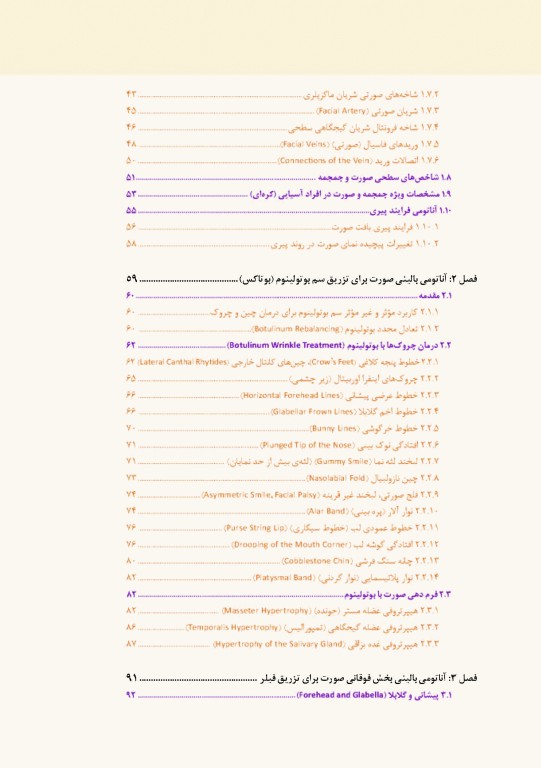 ۱.۷.۲ شاخه‌های صورتی شریان ماگزیلری ........ ۴۳
۱.۷.۳ شریان صورتی (Facial Artery) ........ ۴۵
۱.۷.۴ شاخه فرونتال شریان گیجگاهی سطحی ........ ۴۶
۱.۷.۵ وریدهای فاسیال (صورتی) (Facial Veins) ........ ۴۸
۱.۷.۶ اتصالات ورید (Connections of the Vein) ........ ۵۰
۱.۸ شاخص‌های سطحی صورت و جمجمه ........ ۵۱
۱.۹ مشخصات ویژه جمجمه و صورت در افراد آسیایی (کره‌ای) ........ ۵۳
۱.۱۰ آناتومی فرایند پیری ........ ۵۵
۱.۱۰.۱ فرایند پیری بافت صورت ........ ۵۶
۱.۱۰.۲ تغییرات پیچیده نمای صورت در روند پیری ........ ۵۸
فصل ۲: آناتومی بالینی صورت برای تزریق سم بوتولینوم (بوتاکس) ........ ۵۹
۲.۱ مقدمه ........ ۶۰
۲.۱.۱ کاربرد مؤثر و غیر مؤثر سم بوتولینوم برای درمان چین و چروک ........ ۶۰
۲.۱.۲ تعادل مجدد بوتولینوم (Botulinum Rebalancing) ........ ۶۰
۲.۲ درمان چروک‌ها با بوتولینوم (Botulinum Wrinkle Treatment) ........ ۶۲
۲.۲.۱ خطوط پنجه کلاغی (Crow's Feet)، چین‌های کانتال خارجی (Lateral Canthal Rhytides) ۶۲
۲.۲.۲ چروک‌های اینفرا اوربیتال (زیر چشمی) ........ ۶۵
۲.۲.۳ خطوط عرضی پیشانی (Horizontal Forehead Lines) ........ ۶۶
۲.۲.۴ خطوط اخم گلابلا (Glabellar Frown Lines) ........ ۶۶
۲.۲.۵ خطوط خرگوشی (Bunny Lines) ........ ۷۰
۲.۲.۶ افتادگی نوک بینی (Plunged Tip of the Nose) ........ ۷۱
۲.۲.۷ لبخند لثه نما (Gummy Smile) (لثه‌ی بیش از حد نمایان) ........ ۷۱
۲.۲.۸ چین نازولبیال (Nasolabial Fold) ........ ۷۳
۲.۲.۹ فلج صورتی، لبخند غیر قرینه (Asymmetric Smile, Facial Palsy) ........ ۷۴
۲.۲.۱۰ نوار آلار (پره بینی) (Alar Band) ........ ۷۴
۲.۲.۱۱ خطوط عمودی لب (خطوط سیگاری) (Purse String Lip) ........ ۷۶
۲.۲.۱۲ افتادگی گوشه لب (Drooping of the Mouth Corner) ........ ۷۶
۲.۲.۱۳ چانه سنگ فرشی (Cobblestone Chin) ........ ۸۰
۲.۲.۱۴ نوار پلاتیسمایی (نوار گردنی) (Platysmal Band) ........ ۸۲
۲.۳ فرم دهی صورت با بوتولینوم ........ ۸۲
۲.۳.۱ هیپرتروفی عضله مستر (جونده) (Masseter Hypertrophy) ........ ۸۲
۲.۳.۲ هیپرتروفی عضله گیجگاهی (تمپورالیس) (Temporalis Hypertrophy) ........ ۸۶
۲.۳.۳ هیپرتروفی غده بزاقی (Hypertrophy of the Salivary Gland) ........ ۸۷
فصل ۳: آناتومی بالینی بخش فوقانی صورت برای تزریق فیلر ........ ۹۱
۳.۱ پیشانی و گلابلا (Forehead and Glabella) ........ ۹۲